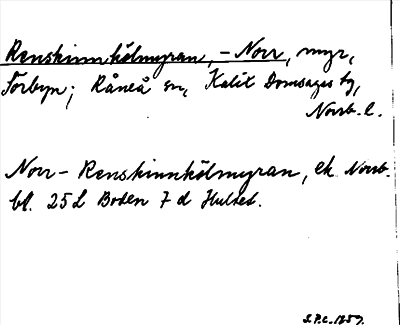 Renskinnkölmyran, – Norr, myr,
Forbyn; Råneå sn, Kalix Domsagas tg,
Norrb. l.
Norr – Renskinnkölmyran, ek. Norrb.
bl. 25 L Boden 7 d Hulted.